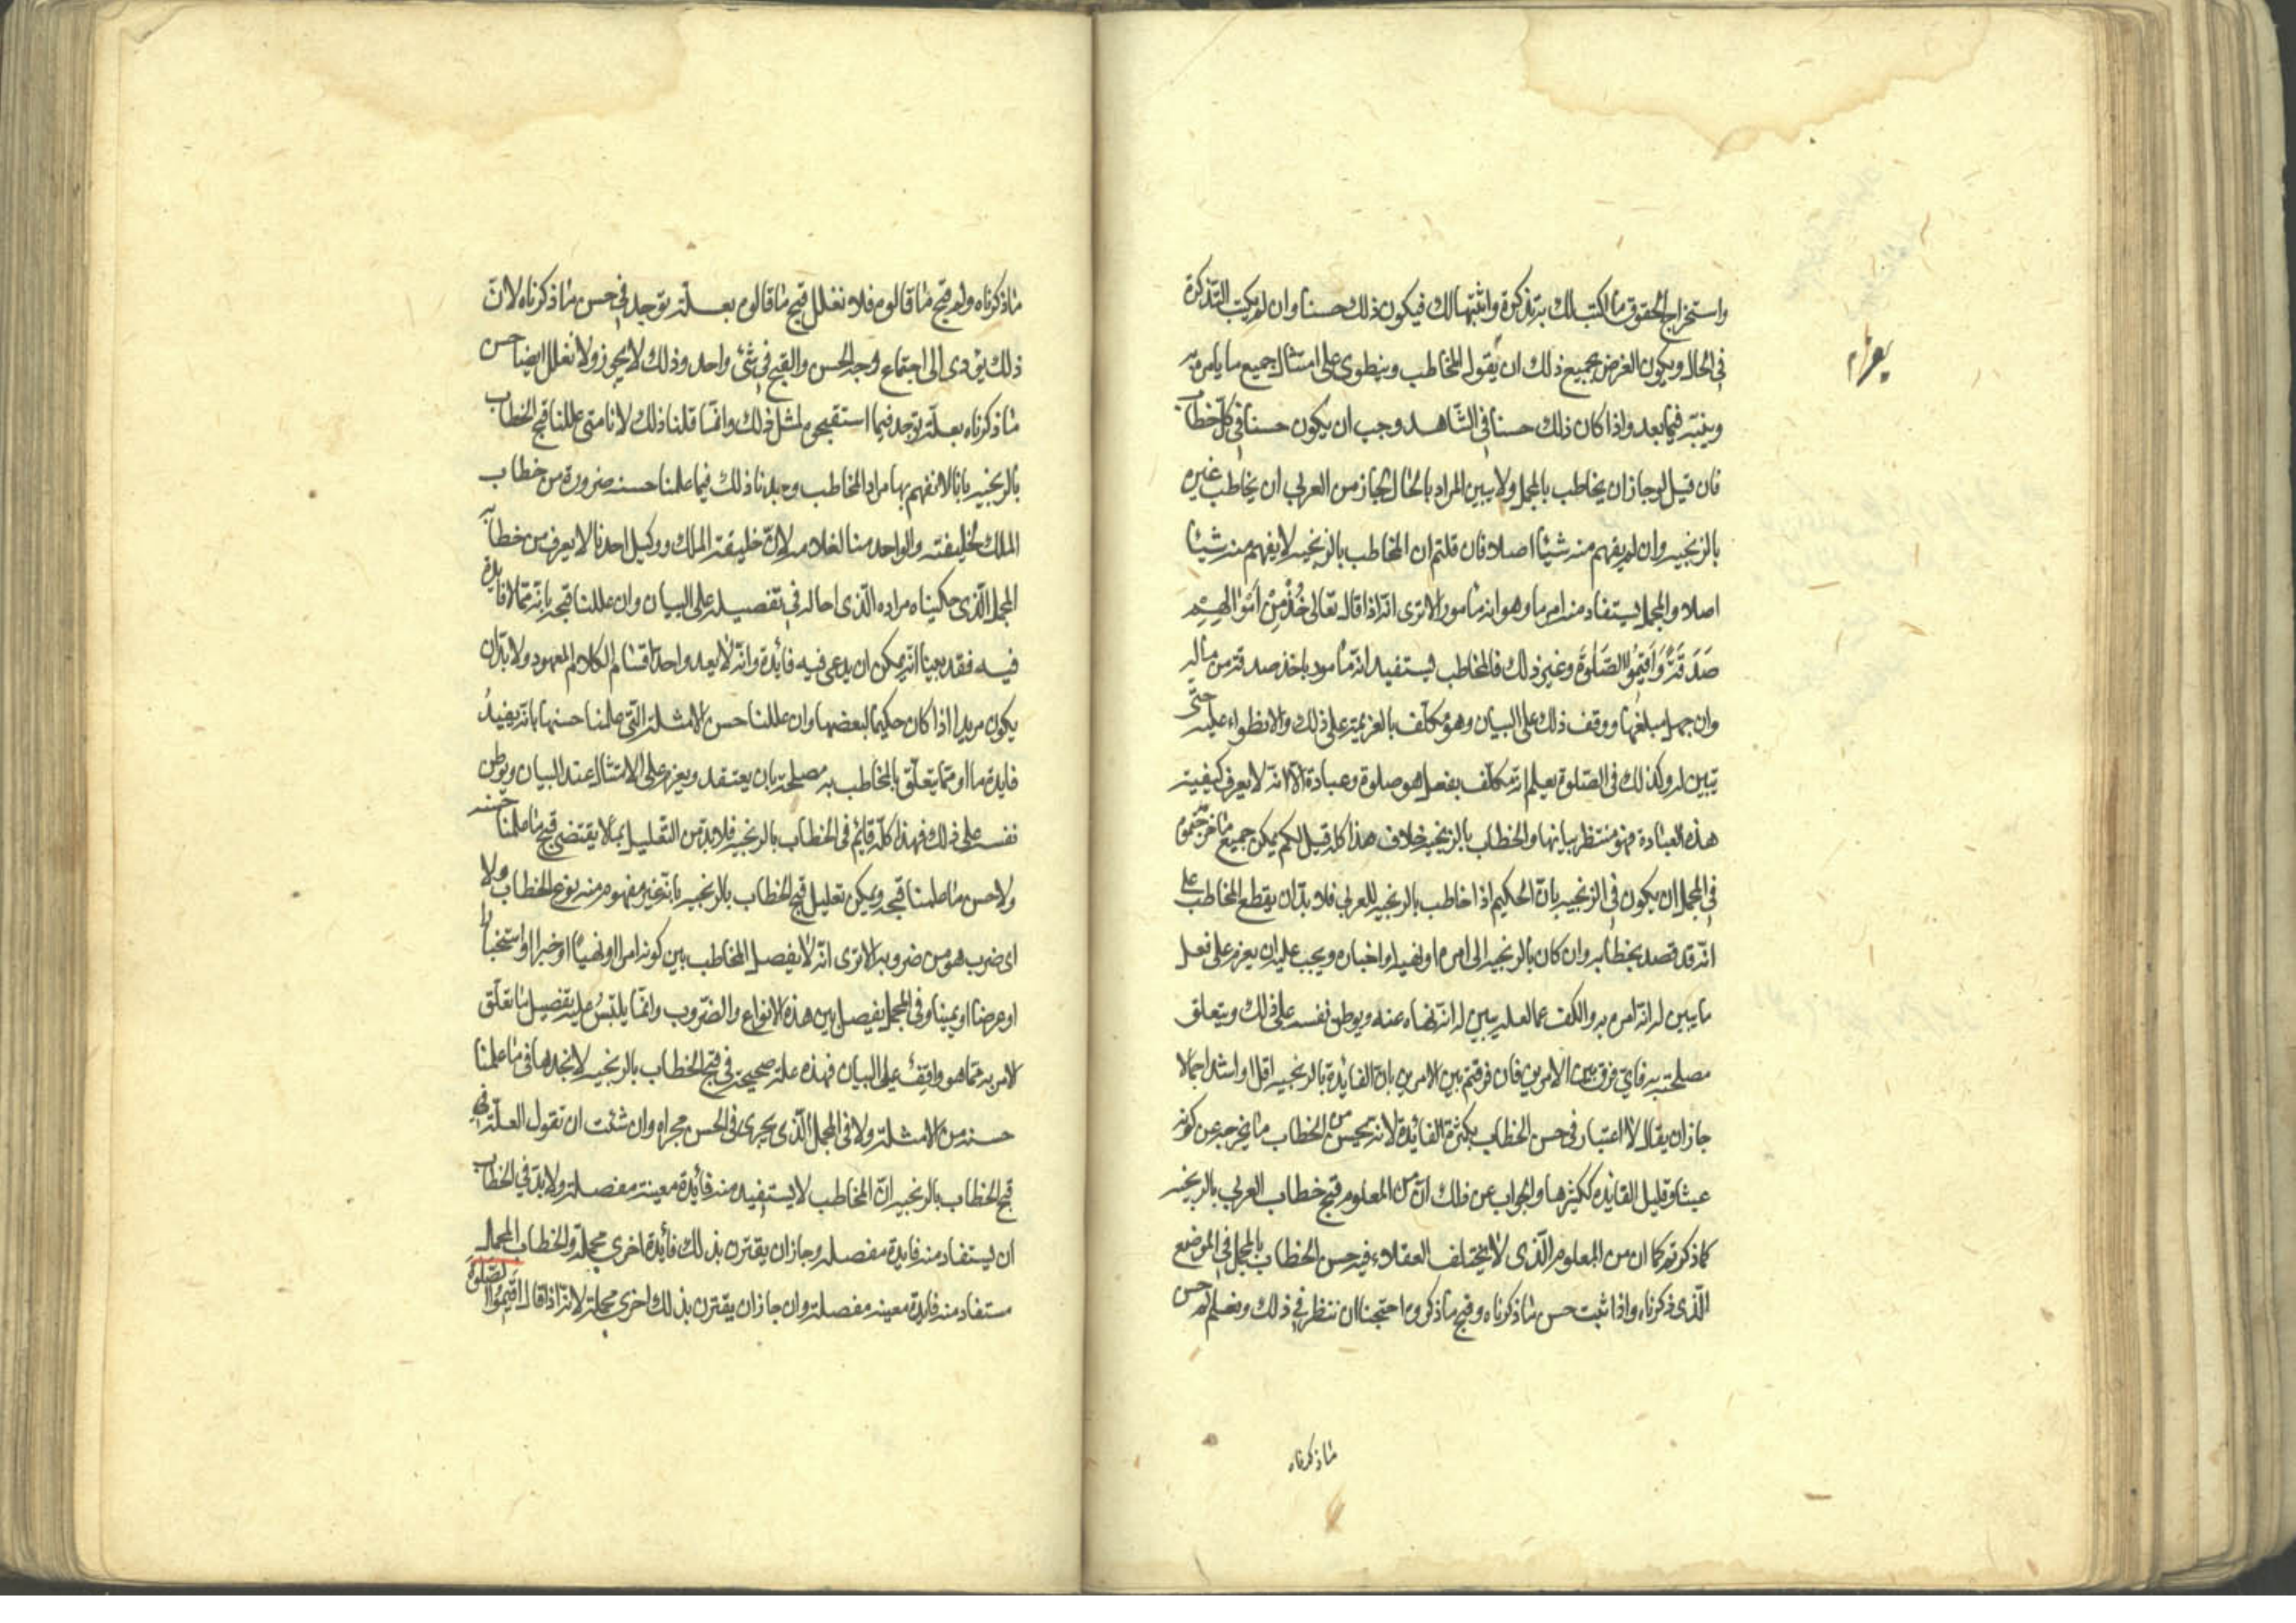 واستخراج الحقوق ما اكتب لك به تذكرة واثبتها لك فيكون ذلك حسنا وان لم يكتب التذكرة
في الحال ويكون الغرض بجميع ذلك ان يقول المخاطب وينطوى على امتثال جميع ما يامر به
يعزم
ويبينه فيما بعد واذا كان ذلك حسنا في الشاهد وجب ان يكون حسنا في كل خطاب
فان قيل لو جاز ان يخاطب بالمجمل ولا يبين المراد بالحال لجاز من العربي ان يخاطب غيره
بالزنجيه وان لم يفهم منه شيئا اصلا فان قلتم ان المخاطب بالزنجيه لا يفهم منه شيئا
اصلا والمجمل يستفاد منه امر ما وهو انه مامور الا ترى انه اذا قال تعالى خُذْ مِنْ أَمْوَالِهِمْ
صَدَقَةً وَاَقِيمُوا الصَّلٰوةَ وغير ذلك فالمخاطب يستفيد انه مامور باخذ صدقة من ماله
وان جهل مبلغها ووقف ذلك على البيان وهو مكلف بالعزيمة على ذلك والانطواء عليه حتى
تبين له وكذلك في الصلوة يعلم انه مكلف بفعل هو صلوة وعبادة الا انه لا يعرف كيفية
هذه العبادة فهو منتظر بيانها والخطاب بالزنجيه خلاف هذا كله قيل لكم يمكن جميع ما خرجتموه
في المجمل ان يكون في الزنجيه بان الحكيم اذا خاطب بالزنجيه للعربي فلا بد ان يقطع المخاطب على
انه قد قصد بخطابه وان كان بالزنجيه الى امره او نهيه او اخباره ويجب عليه ان يعزم على فعل
ما يبين له انه امر به والكف عما لعله يبين له انه نهاه عنه ويوطن نفسه على ذلك ويتعلق
مصلحته به فاي فرق بين الامرين فان فرقتم بين الامرين بان الفايدة بالزنجيه اقل او اشد اجمالا
جاز ان يقال لا اعتبار في حسن الخطاب بكثرة الفائدة لانه يحسن من الخطاب ما يخرجه عن كونه
عبثا وقليل الفايده ككثيرها والجواب عن ذلك ان من المعلوم قبح خطاب العربي بالزنجيه
كما ذكرتم كما ان من المعلوم الذى لا يختلف العقلاء فيه حسن الخطاب بالمجمل في المواضع
الذى ذكرناه واذا ثبت حسن ما ذكرناه وقبح ما ذكروه احتجنا ان ننظر في ذلك ونعلم لم حسن
ما ذكرناه
ما ذكرناه ولم قبح ما قالوه فلا نعلل قبح ما قالوه بعلة توجد في حسن ما ذكرناه لان
ذلك يؤدى الى اجتماع وجه الحسن والقبح في شئ واحد وذلك لا يجوز ولا نعلل ايضا حسن
ما ذكرناه بعلة توجد فيما استقبحوه لمثل ذلك وانما قلنا ذلك لانا متى عللنا قبح الخطاب
بالزنجيه بانا لا نفهم بها مراد المخاطب وجدنا ذلك فيما علمنا حسنه ضرورة من خطاب
الملك لخليفته والواحد منا لغلامه لان خليفة الملك ووكيل احدنا لا يعرف من خطابه
المجمل الذى حكيناه مراده الذى احاله في تفصيله على البيان وان عللنا قبحه بانه مما لا فايدة
فيه فقد بينا انه يمكن ان يدعى فيه فائدة وانه لا يعدو احد اقسام الكلام المعهود ولا بد ان
يكون مريدا اذا كان حكيما لبعضها وان عللنا حسن الامثلة التي علمنا حسنها بانه يفيد
فايدة ما او مما يتعلق بالمخاطب به مصلحة بان يعتقد ويعزم على الامتثال عند البيان ويوطن
نفسه على ذلك فهذا كله قائم في الخطاب بالزنجيه فلا بد من التعليل بما لا يقتضى قبح ما علمنا حسنه
ولا حسن ما علمنا قبحه ويمكن تعليل قبح الخطاب بالزنجيه بانه غير مفهوم منه نوع الخطاب ولا
اى ضرب هو من ضروبه الا ترى انه لا يفصل المخاطب بين كونه امرا او نهيا او خبرا او استخبارا
او عرضا او يمينا وفي المجمل يفصل بين هذه الانواع والضروب وانما يلتبس عليه تفصيل ما تعلق
الامر به مما هو واقف على البيان فهذه علة صحيحة في قبح الخطاب بالزنجيه لا نجدها في ما علمنا
حسنه من الامثلة ولا في المجمل الذى يجرى في الحسن مجراه وان شئت ان تقول العلة في
قبح الخطاب بالزنجيه ان المخاطب لا يستفيد منه فائدة معينة مفصلة ولا بد في الخطاب
ان يستفاد منه فايدة مفصله وجاز ان يقترن بذلك فائدة اخرى مجملة والخطاب المجمل
مستفاد منه فايدة معينه مفصلة وان جاز ان يقترن بذلك اخرى مجملة لانه اذا قال اَقِيمُوا الصَّلٰوةَ